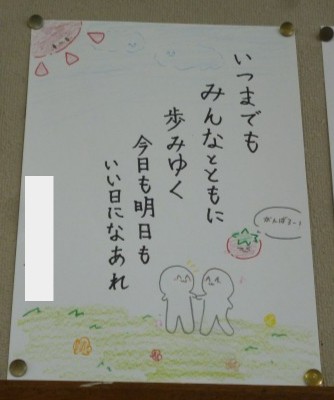 いつまでも
みんなとともに
歩みゆく
今日も明日も
いい日になあれ
がんばるー!